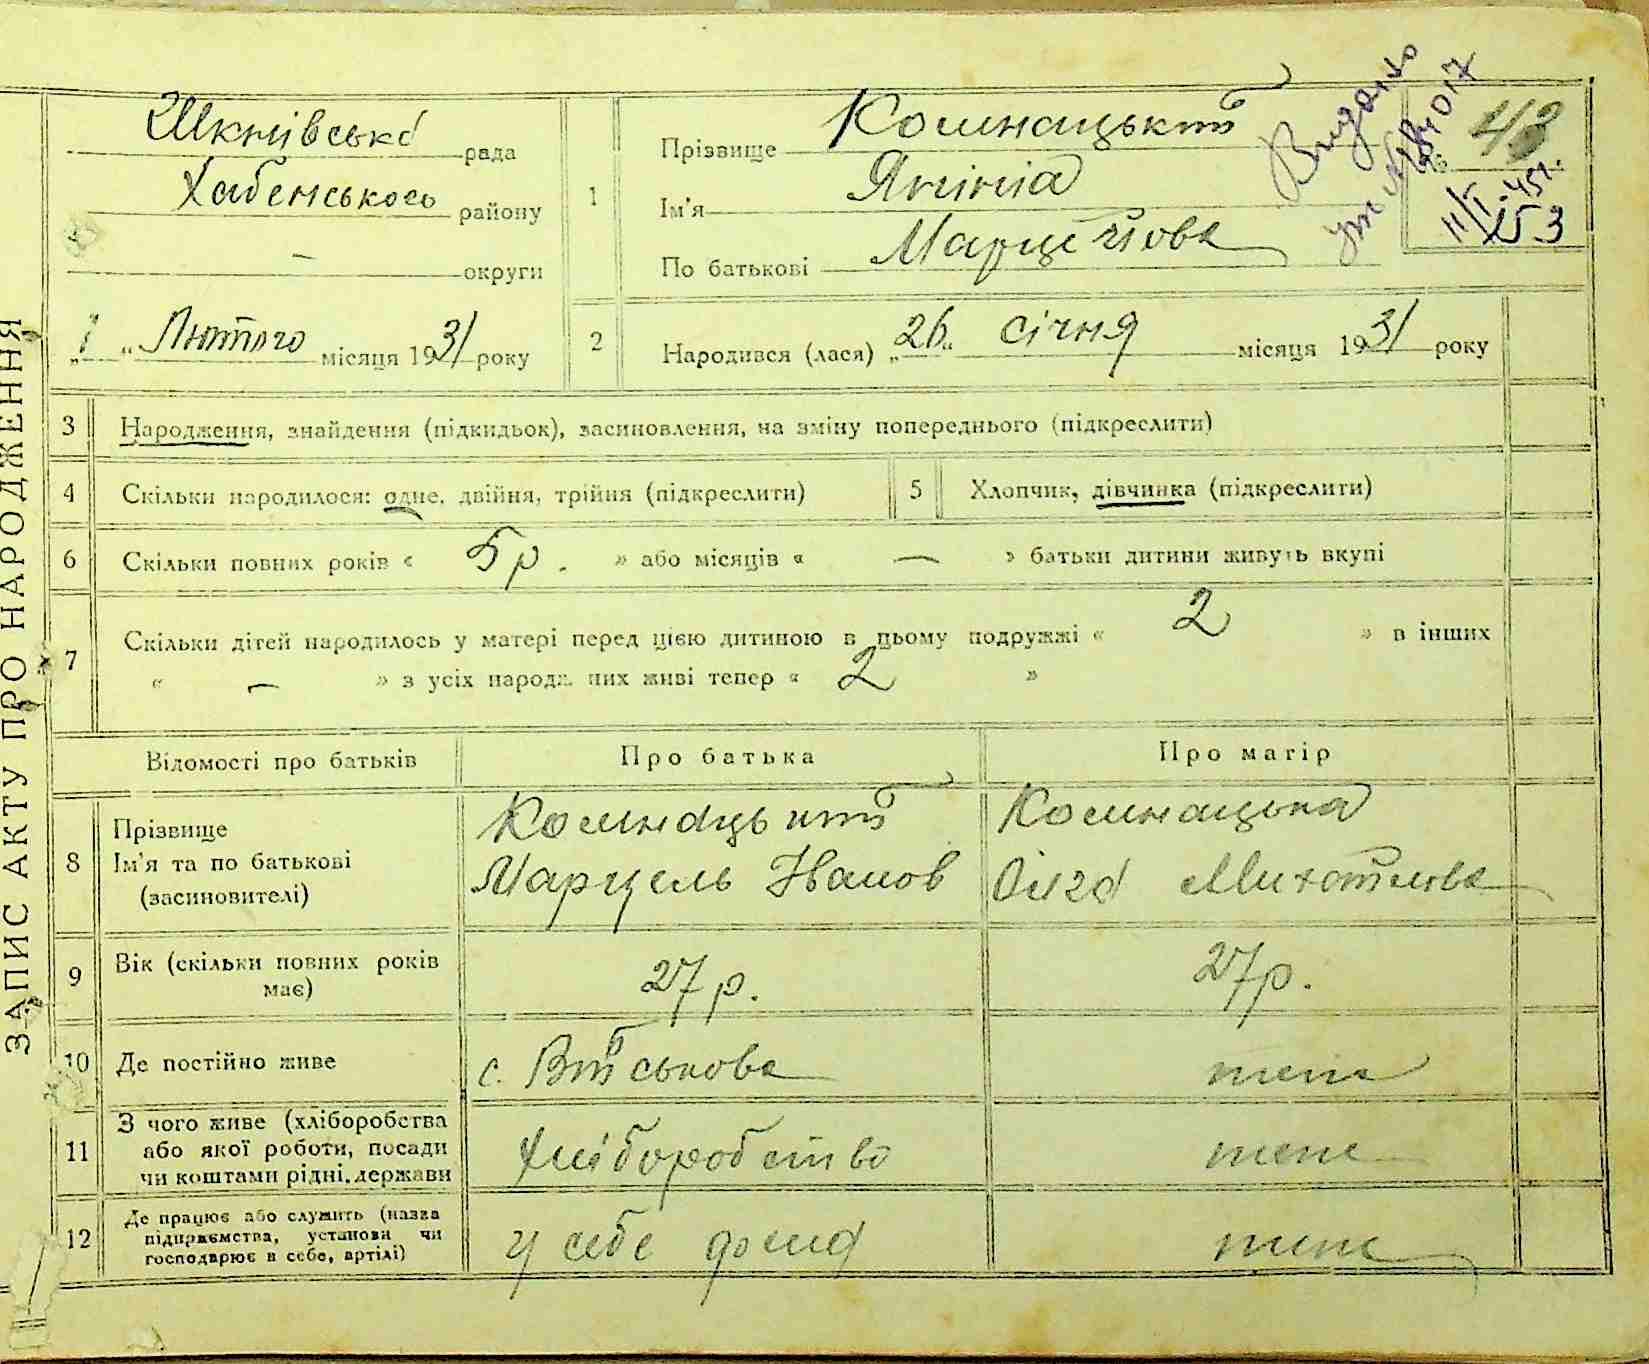 ЗАПИС АКТУ ПРО НАРОДЖЕННЯ
рада
Хабенського району
— округи
„1“ Лютого місяця 1931 року
1
Прізвище
Ім'я Яніна
По батькові
Видано
№
43
53
2
Народився (лася) „26“ січня місяця 1931 року
3 Народження, знайдення (підкидьок), засиновлення, на зміну попереднього (підкреслити)
4 Скільки народилося: одне, двійня, трійня (підкреслити)
5 Хлопчик, дівчинка (підкреслити)
6 Скільки повних років « 5 р. » або місяців « — » батьки дитини живуть вкупі
7 Скільки дітей народилось у матері перед цією дитиною в цьому подружжі « 2 » в інших
« — » з усіх народжених живі тепер « 2 »
Відомості про батьків Про батька Про матір
8 Прізвище
Ім'я та по батькові
(засиновителі)
Марцель Іванов
Ольга
9 Вік (скільки повних років має) 27 р. 27 р.
10 Де постійно живе с. теж
11 З чого живе (хліборобства або якої роботи, посади чи коштами рідні, держави хліборобство теж
12 Де працює або служить (назва підприємства, установи чи господарює в себе, артілі) у себе дома теж